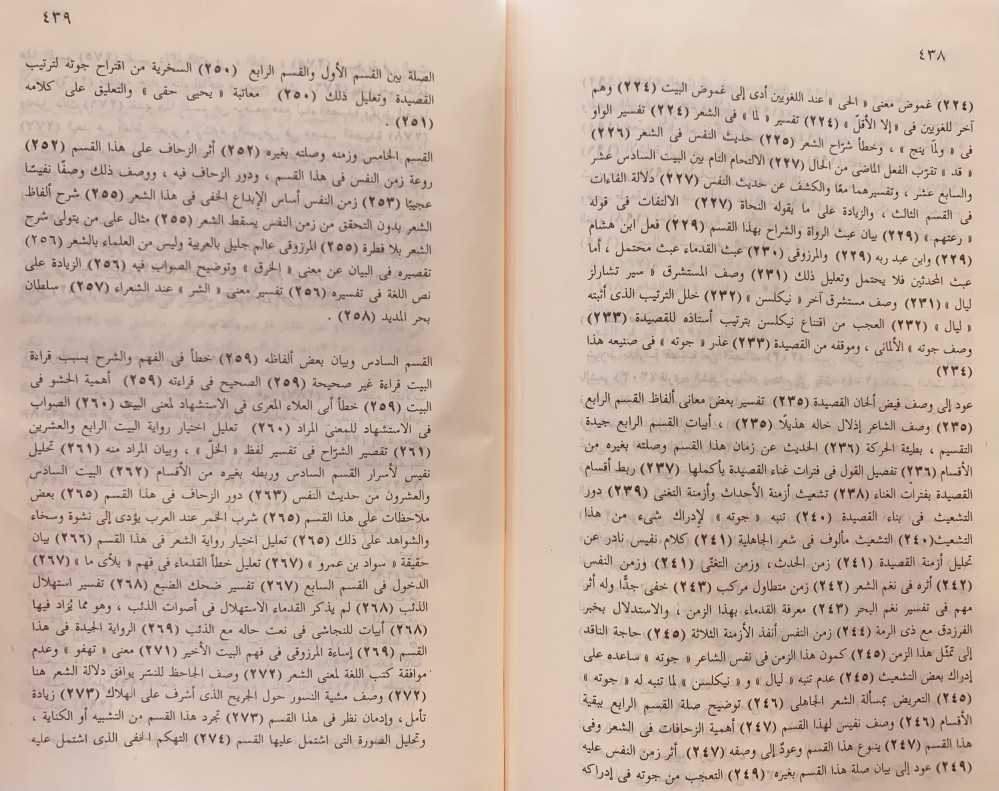 ٤٣٨
(٢٢٤) غموض معنى « الحى » عند اللغويين أدى إلى غموض البيت (٢٢٤) وهم
آخر للغويين فى « إلا الأقلّ » (٢٢٤) تفسير « لما » فى الشعر (٢٢٤) تفسير الواو
فى « ولمّا ينج » ، وخطأ شرّاح الشعر (٢٢٥) حديث النفس فى الشعر (٢٢٦)
« قد » تقرّب الفعل الماضى من الحال (٢٢٧) الالتحام التام بين البيت السادس عشر
والسابع عشر ، وتفسيرهما معًا والكشف عن حديث النفس (٢٢٧) دلالة الفاءات
فى القسم الثالث ، والزيادة على ما يقوله النحاة (٢٢٧) الالتفات فى قوله
« رعتهم » (٢٢٩) بيان عبث الرواة والشراح بهذا القسم (٢٢٩) فعل ابن هشام
(٢٢٩) وابن عبد ربه (٢٢٩) والمرزوقى (٢٣٠) عبث القدماء عبث محتمل ، أما
عبث المحدثين فلا يحتمل وتعليل ذلك (٢٣١) وصف المستشرق « سير تشارلز
ليال » (٢٣١) وصف مستشرق آخر « نيكلسن » (٢٣٢) خلل الترتيب الذى أثبته
« ليال » (٢٣٢) العجب من اقتناع نيكلسن بترتيب أستاذه للقصيدة (٢٣٣)
وصف جوته » الألمانى ، وموقفه من القصيدة (٢٣٣) عذر « جوته » فى صنيعه هذا
(٢٣٤)
عود إلى وصف فيض ألحان القصيدة (٢٣٥) تفسير بعض معانى ألفاظ القسم الرابع
(٢٣٥) وصف الشاعر إذلال خاله هذيلًا (٢٣٥) ، أبيات القسم الرابع جيدة
التقسيم ، بطيئة الحركة (٢٣٦) الحديث عن زمان هذا القسم وصلته بغيره من
الأقسام (٢٣٦) تفصيل القول فى فترات غناء القصيدة بأكملها (٢٣٧) ربط أقسام
القصيدة بفترات الغناء (٢٣٨) تشعيث أزمنة الأحداث وأزمنة التغنى (٢٣٩) دور
التشعيث فى بناء القصيدة (٢٤٠) تنبه « جوته » لإدراك شىء من هذا
التشعيث (٢٤٠) التشعيث مألوف فى شعر الجاهلية (٢٤١) كلام نفيس نادر عن
تحليل أزمنة القصيدة (٢٤١) زمن الحدث، وزمن التغنّى (٢٤١) وزمن النفس
(٢٤٢) أثره فى نغم الشعر (٢٤٢) زمن متطاول مركب (٢٤٣) خفى جدًّا وله أثر
مهم فى تفسير نغم البحر (٢٤٣) معرفة القدماء بهذا الزمن ، والاستدلال بخبر
الفرزدق مع ذى الرمة (٢٤٤) زمن النفس أنفذ الأزمنة الثلاثة (٢٤٥) حاجة الناقد
إلى تمثّل هذا الزمن (٢٤٥) كمون هذا الزمن فى نفس الشاعر « جوته » ساعده على
إدراك بعض التشعيث (٢٤٥) عدم تنبه « ليال » و « نيكلسن » لما تنبه له « جوته »
(٢٤٥) التعريض بمسألة الشعر الجاهلى (٢٤٦) توضيح صلة القسم الرابع ببقية
الأقسام (٢٤٦) وصف نفيس لهذا القسم (٢٤٧) أهمية الزحافات فى الشعر وفى
هذا القسم (٢٤٧) ينبوع هذا القسم وعودٌ إلى وصفه (٢٤٧) أثر زمن النفس عليه
(٢٤٩) عود إلى بيان صلة هذا القسم بغيره (٢٤٩) التعجب من جوته فى إدراكه
٤٣٩
الصلة بين القسم الأول والقسم الرابع (٢٥٠) السخرية من اقتراح جوته لترتيب
القصيدة وتعليل ذلك (٢٥٠) معاتبة « يحيى حقى » والتعليق على كلامه
(٢٥١) .
القسم الخامس وزمنه وصلته بغيره (٢٥٢) أثر الزحاف على هذا القسم (٢٥٢)
روعة زمن النفس فى هذا القسم ، ودور الزحاف فيه ، ووصف ذلك وصفًا نفيسًا
عجيبًا (٢٥٣) زمن النفس أساس الإبداع الخفى فى هذا الشعر (٢٥٥) شرح ألفاظ
الشعر بدون التحقق من زمن النفس يسقط الشعر (٢٥٥) مثال على من يتولى شرح
الشعر بلا فطرة (٢٥٥) المرزوقى عالم جليل بالعربية وليس من العلماء بالشعر (٢٥٦)
تقصيره فى البيان عن معنى « الخرق » وتوضيح الصواب فيه (٢٥٦) الزيادة على
نص اللغة فى تفسيره (٢٥٦) تفسير معنى « الشر » عند الشعراء (٢٥٧) سلطان
بحر المديد (٢٥٨) .
القسم السادس وبيان بعض ألفاظه (٢٥٩) خطأ فى الفهم والشرح بسبب قراءة
البيت قراءة غير صحيحة (٢٥٩) الصحيح فى قراءته (٢٥٩) أهمية الحشو فى
البيت (٢٥٩) خطأ أبى العلاء المعرى فى الاستشهاد لمعنى البيت (٢٦٠) الصواب
فى الاستشهاد للمعنى المراد (٢٦٠) تعليل اختيار رواية البيت الرابع والعشرين
(٢٦١) تقصير الشرّاح فى تفسير لفظ « الخلّ » ، وبيان المراد منه (٢٦١) تحليل
نفيس لأسرار القسم السادس وربطه بغيره من الأقسام (٢٦٢) البيت السادس
والعشرون من حديث النفس (٢٦٣) دور الزحاف فى هذا القسم (٢٦٥) بعض
ملاحظات على هذا القسم (٢٦٥) شرب الخمر عند العرب يؤدى إلى نشوة وسخاء
والشواهد على ذلك (٢٦٥) تعليل اختيار رواية الشعر فى هذا القسم (٢٦٦) بيان
حقيقة « سواد بن عمرو » (٢٦٧) تعليل خطأ القدماء فى فهم « بلأى ما » (٢٦٧)
الدخول فى القسم السابع (٢٦٧) تفسير ضحك الضبع (٢٦٨) تفسير استهلال
الذئب (٢٦٨) لم يذكر القدماء الاستهلال فى أصوات الذئب ، وهو مما يُزاد فيها
(٢٦٨) أبيات للنجاشى فى نعت حاله مع الذئب (٢٦٩) الرواية الجيدة فى هذا
القسم (٢٦٩) إساءة المرزوقى فى فهم البيت الأخير (٢٧١) معنى « تهفو » وعدم
موافقة كتب اللغة لمعنى الشعر (٢٧٢) وصف الجاحظ للنسر يوافق دلالة الشعر هنا
(٢٧٢) وصف مشية النسور حول الجريح الذى أشرف على الهلاك (٢٧٣) زيادة
تأمل ، وإدمان نظر فى هذا القسم (٢٧٣) تجرد هذا القسم من التشبيه أو الكناية ،
وتحليل الصورة التى اشتمل عليها القسم (٢٧٤) التهكم الخفى الذى اشتمل عليه